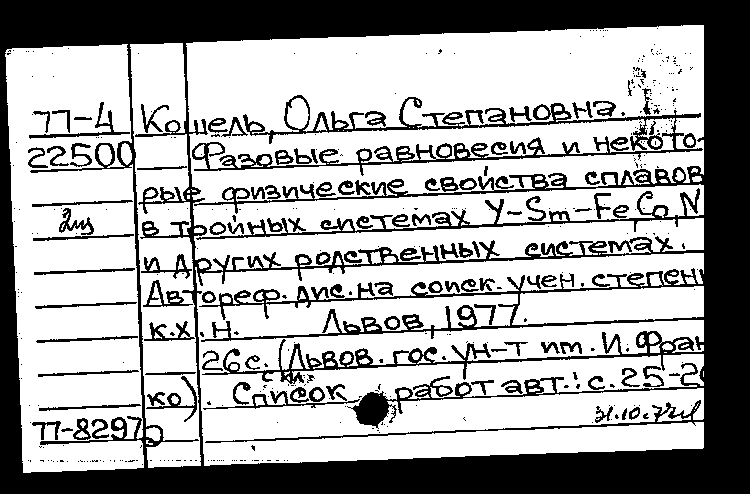 77-4 Кошель, Ольга Степановна.
22500 Фазовые равновесия и некото-
рые физические свойства сплавов
2 в тройных системах Y-Sm-Fe,Co,N
и других родственных системах.
Автореф. дис. на соиск. учен. степени
к.х.н. Львов, 1977.
26с. (Львов. гос. ун-т им. И. Фран
ко). Список работ авт.: с. 25-2
77-8297
31.10.77